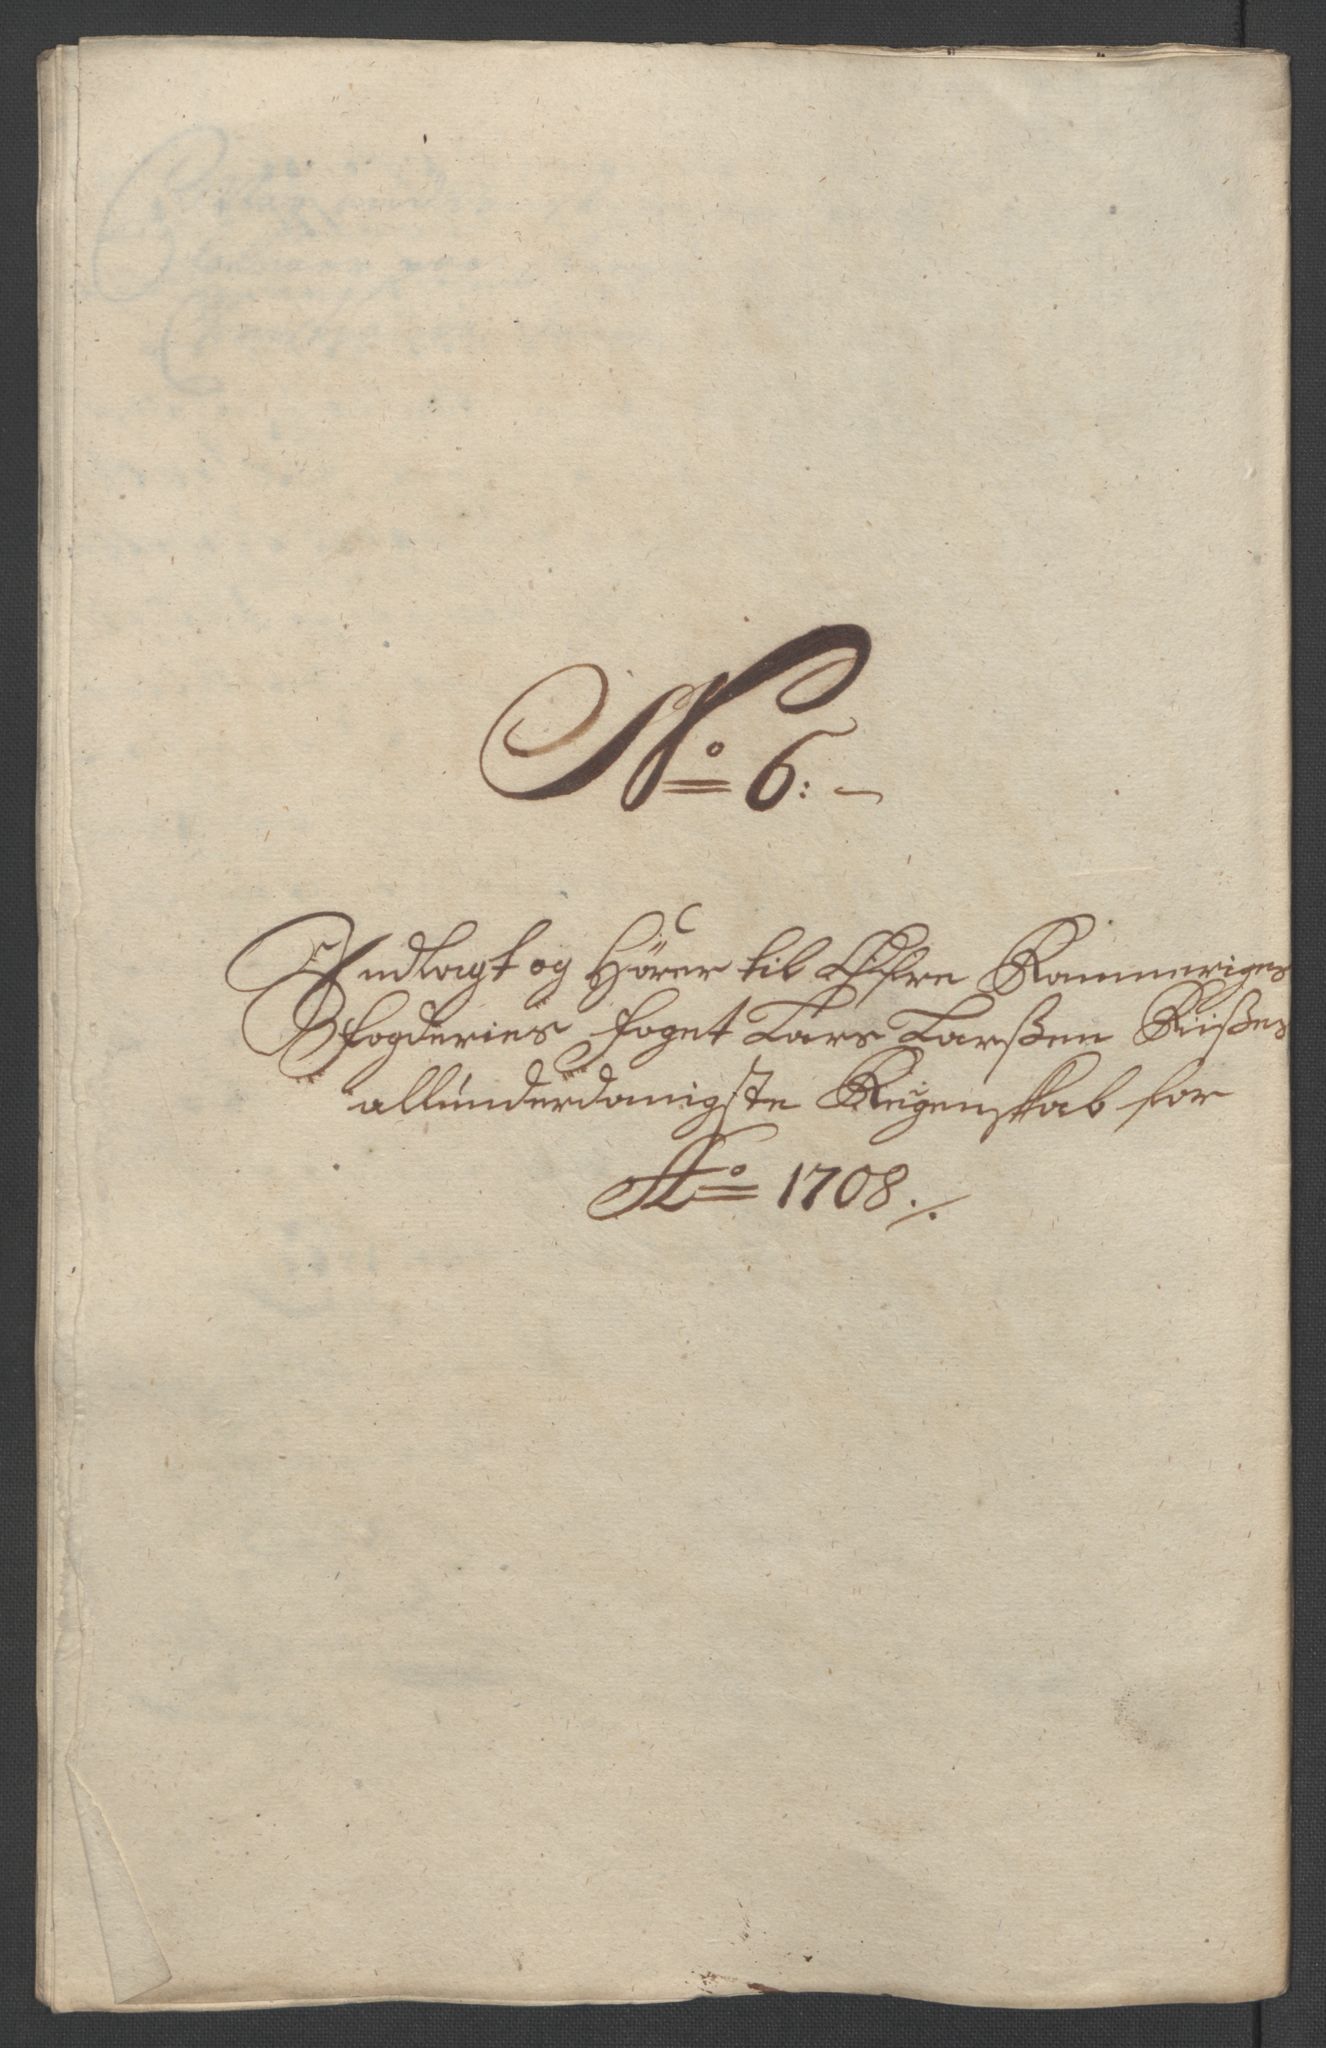 No 6:
Indlagt og Hörer til Öfre Rommeriges
fogderies foget Lars Larßen Rißes
allunderdanigste Regenskab for
Ao 1708.